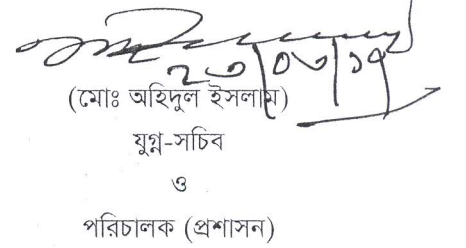 ২৩/০৩/১৭
(মোঃ অহিদুল ইসলাম)
যুগ্ন-সচিব
ও
পরিচালক (প্রশাসন)